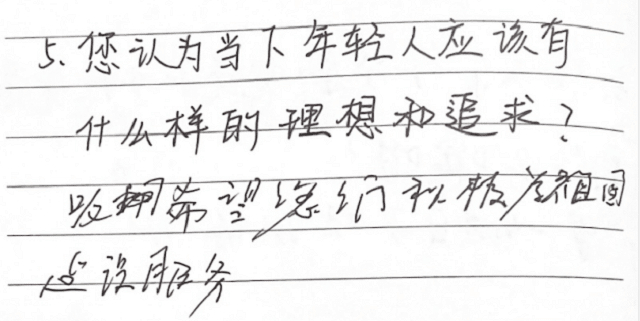 5、您认为当下年轻人应该有
什么样的理想和追求？
希望您们积极为祖国
建设服务